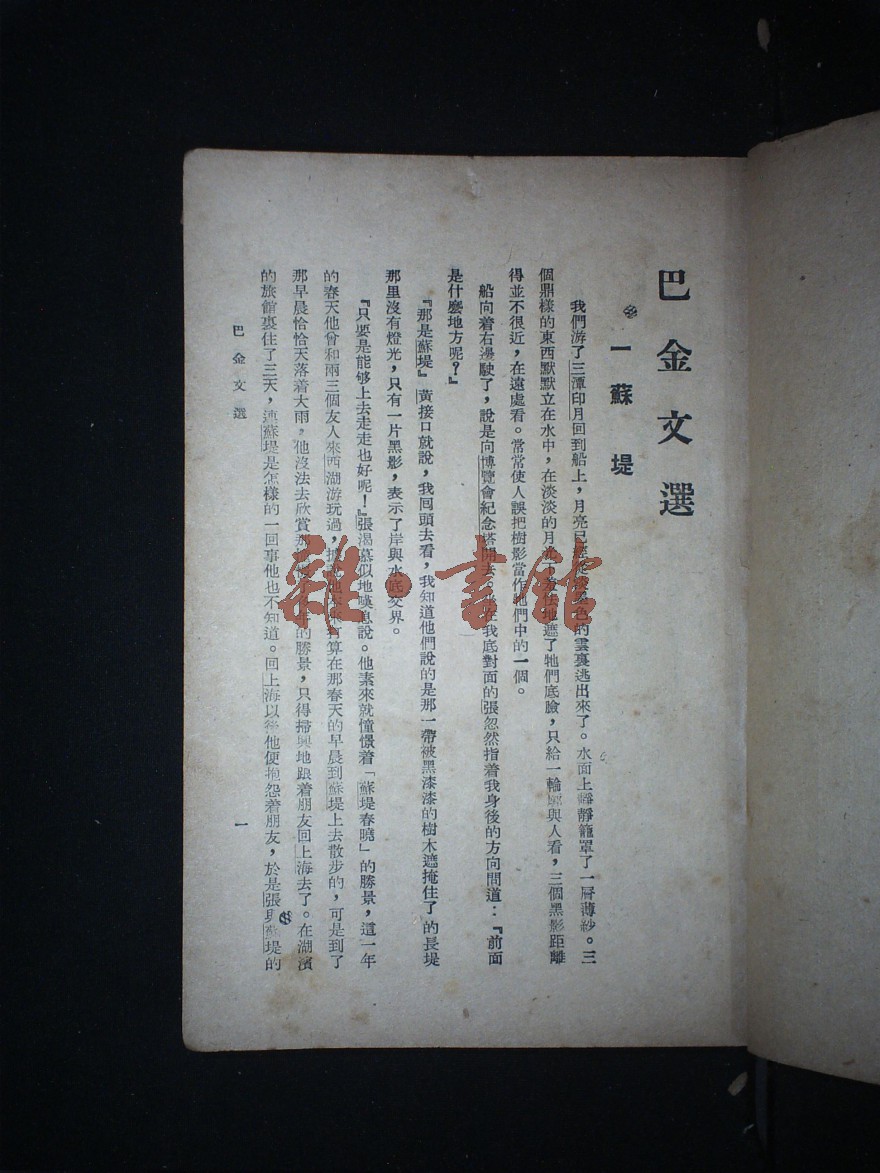 巴金文選
一 蘇堤
我們游了三潭印月回到船上，月亮已經從淡墨色的雲裏逃出來了。水面上靜靜籠罩了一層薄紗。三
個鼎樣的東西默默立在水中，在淡淡的月光下羞怯地遮了牠們底臉，只給一輪廓與人看，三個黑影距離
得並不很近，在遠處看。常常使人誤把樹影當作牠們中的一個。
船向着右邊駛了，說是向博覽會紀念塔開去。坐在我底對面的張忽然指着我身後的方向問道：『前面
是什麽地方呢？』
『那是蘇堤』黃接口就說，我囘頭去看，我知道他們說的是那一帶被黑漆漆的樹木遮掩住了的長堤
那里沒有燈光，只有一片黑影，表示了岸與水底交界。
『只要是能够上去走走也好呢！』張渴慕似地嘆息說。他素來就憧憬着「蘇堤春曉」的勝景，這一年
的春天他曾和兩三個友人來西湖游玩過，打算在那春天的早晨到蘇堤上去散步的，可是到了
那早晨恰恰天落着大雨，他沒法去欣賞那的勝景，只得掃興地跟着朋友回上海去了。在湖濱
的旅館裏住了三天，連蘇堤是怎樣的一回事他也不知道。回上海以後他便抱怨着朋友，於是張與蘇堤的
巴金文選
一
雜·書館